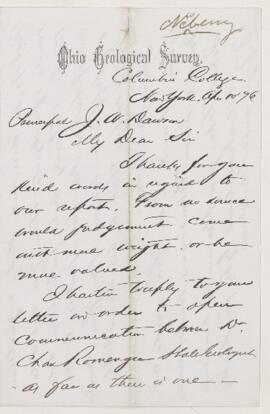 Newberry
Ohio Geological Survey.
Columbia College
New York, Apr 10 '76
Principal J. W. Dawson
My Dear Sir
Thanks for your
kind words in regard to
our report. From no source
would judgement come
with more weight or be
more valued.
I hasten to reply to your
letter in order to open
communication between Dr
Chas Rominger State Geologist
- as far as there is one -